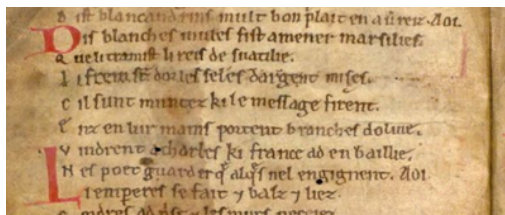 D ist blancandrins mult bon plait en aureiz. Aoi.
Dis blanches mules fist amener marsilies.
Q ue li tramist li reis de suatilie.
L i frein sunt dor les seles dargent mises.
C il sunt muntez ki le message firent.
E nz en lur mains portent branches doliue.
V indrent a charles ki france ad en baillie.
N es poet guarder q̄ alq̄s nel engignent. Aoi
Li empereres se fait ⁊ balz ⁊ liez.